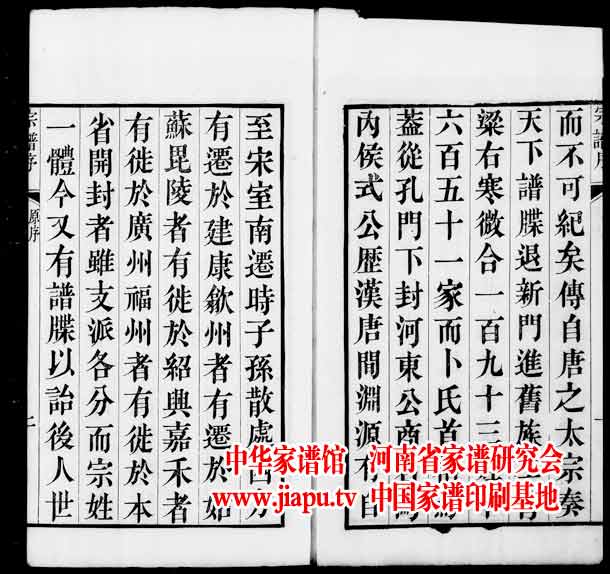 宗譜序
而不可紀矣傳自唐之太宗奏
天下譜牒退新門進舊族
梁右寒微合一百九十三
六百五十一家而卜氏首
蓋從孔門下封河東公商
內侯式公歷漢唐間淵源有自
至宋室南遷時子孫散處四方
有遷於建康歙州者有遷於姑
蘇毘陵者有徙於紹興嘉禾者
有徙於廣州福州者有徙於本
省開封者雖支派各分而宗姓
一體今又有譜牒以詒後人世
宗譜序 原序 二
中华家谱馆 河南省家谱研究会
www.jiapu.tv 中国家谱印刷基地